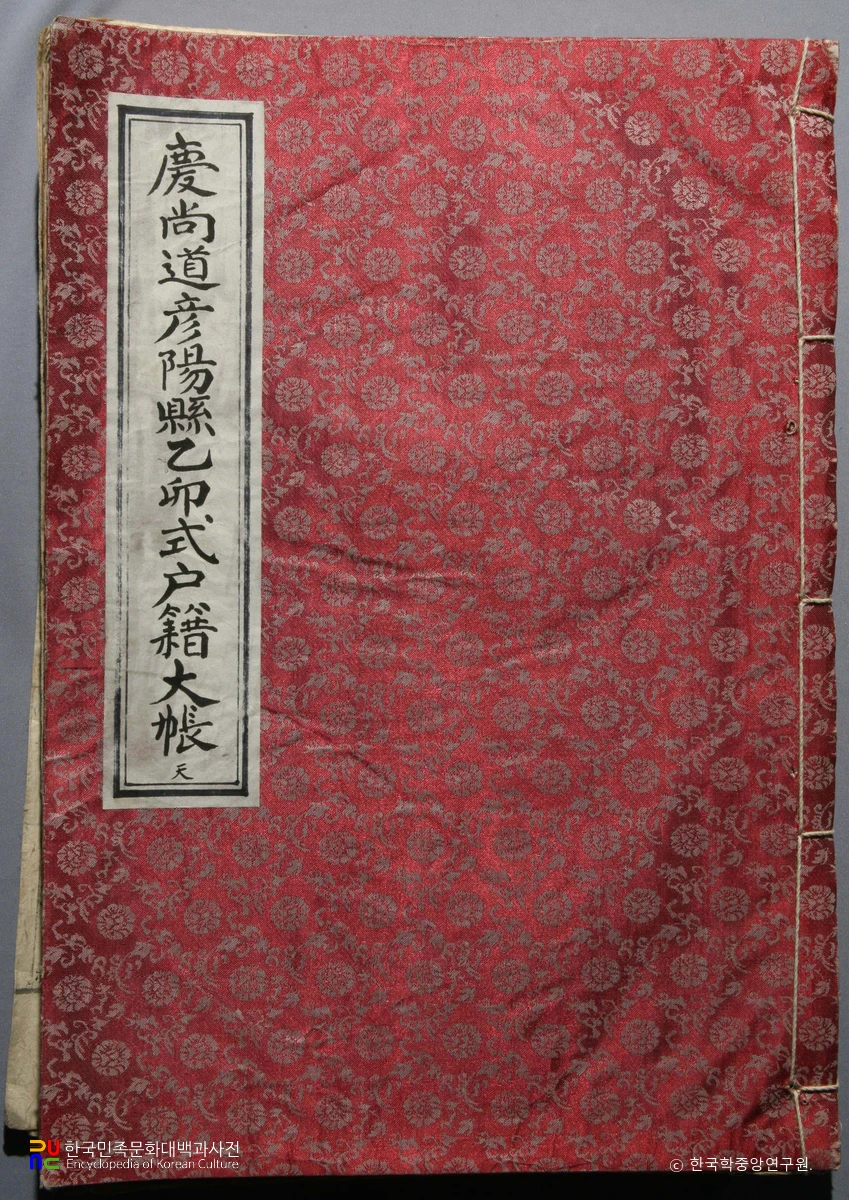 慶尙道彦陽縣乙卯式户籍大帳
天
한국민족문화대백과사전
Encyclopedia of Korean Culture
ⓒ 한국학중앙연구원.